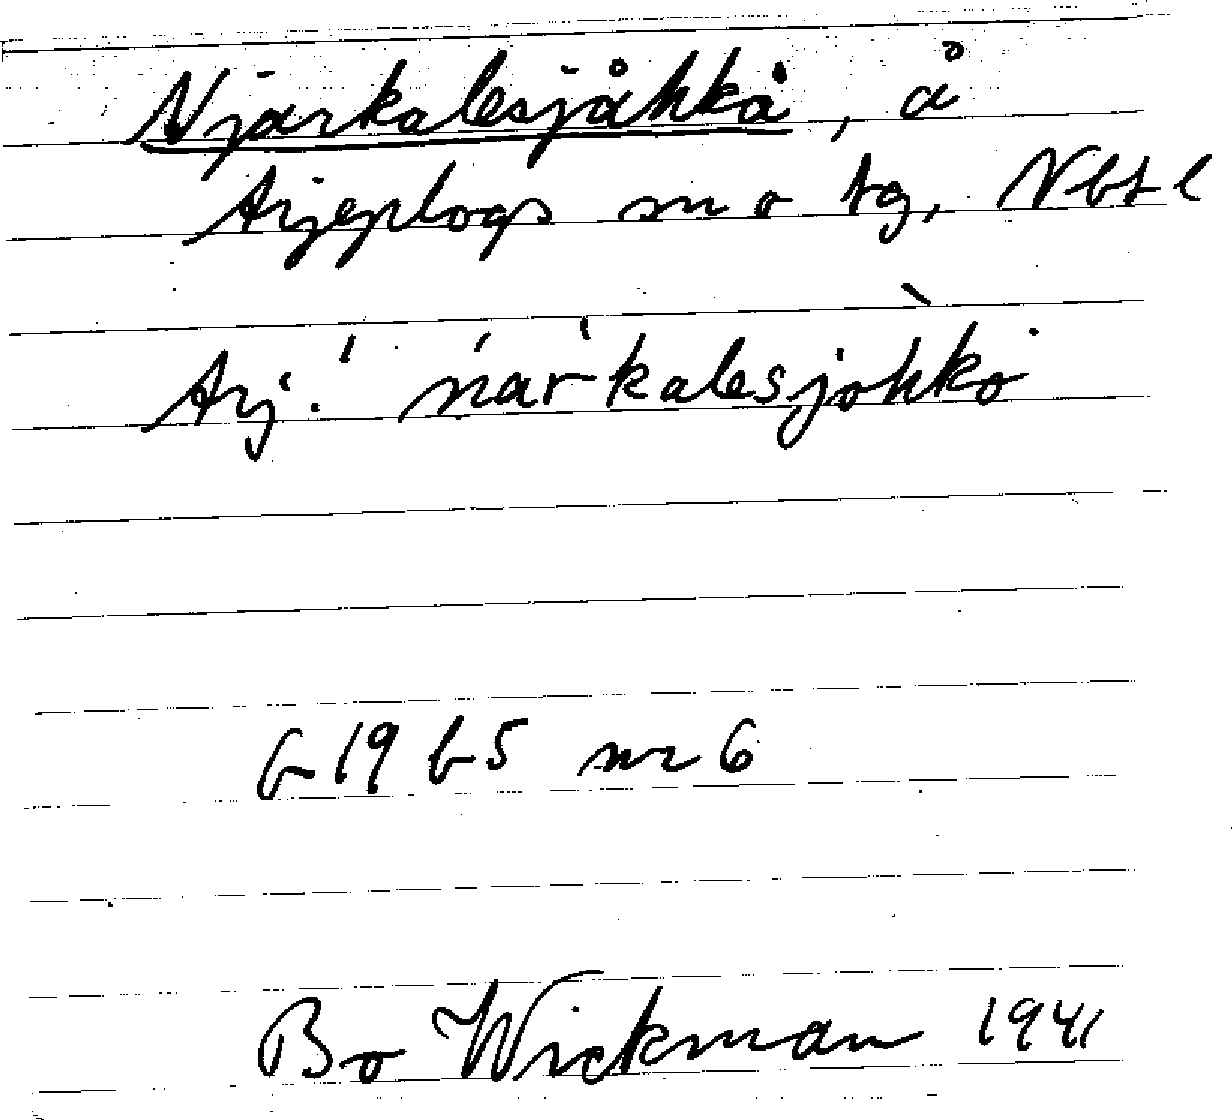 Njarkalesjåhkå, å
Arjeplogs sn o tg, Vbt l
Arj: ˈńarˈkalesjohko
G 19 b 5 nr 6
Bo Wickman 1941